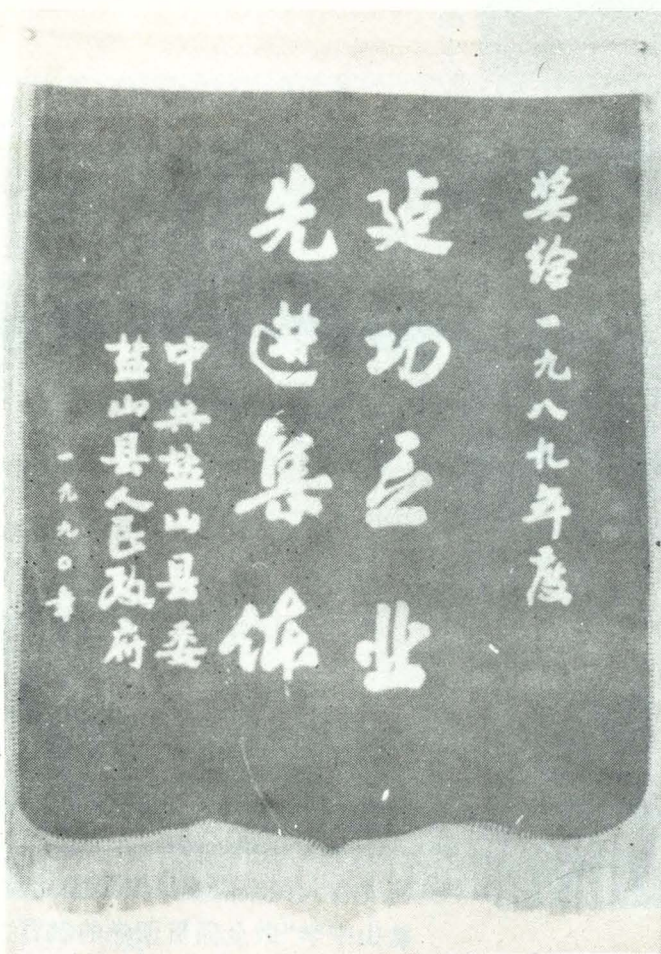 奖给一九八九年度
建功立业
先进集体
中共盐山县委
盐山县人民政府
一九九〇年